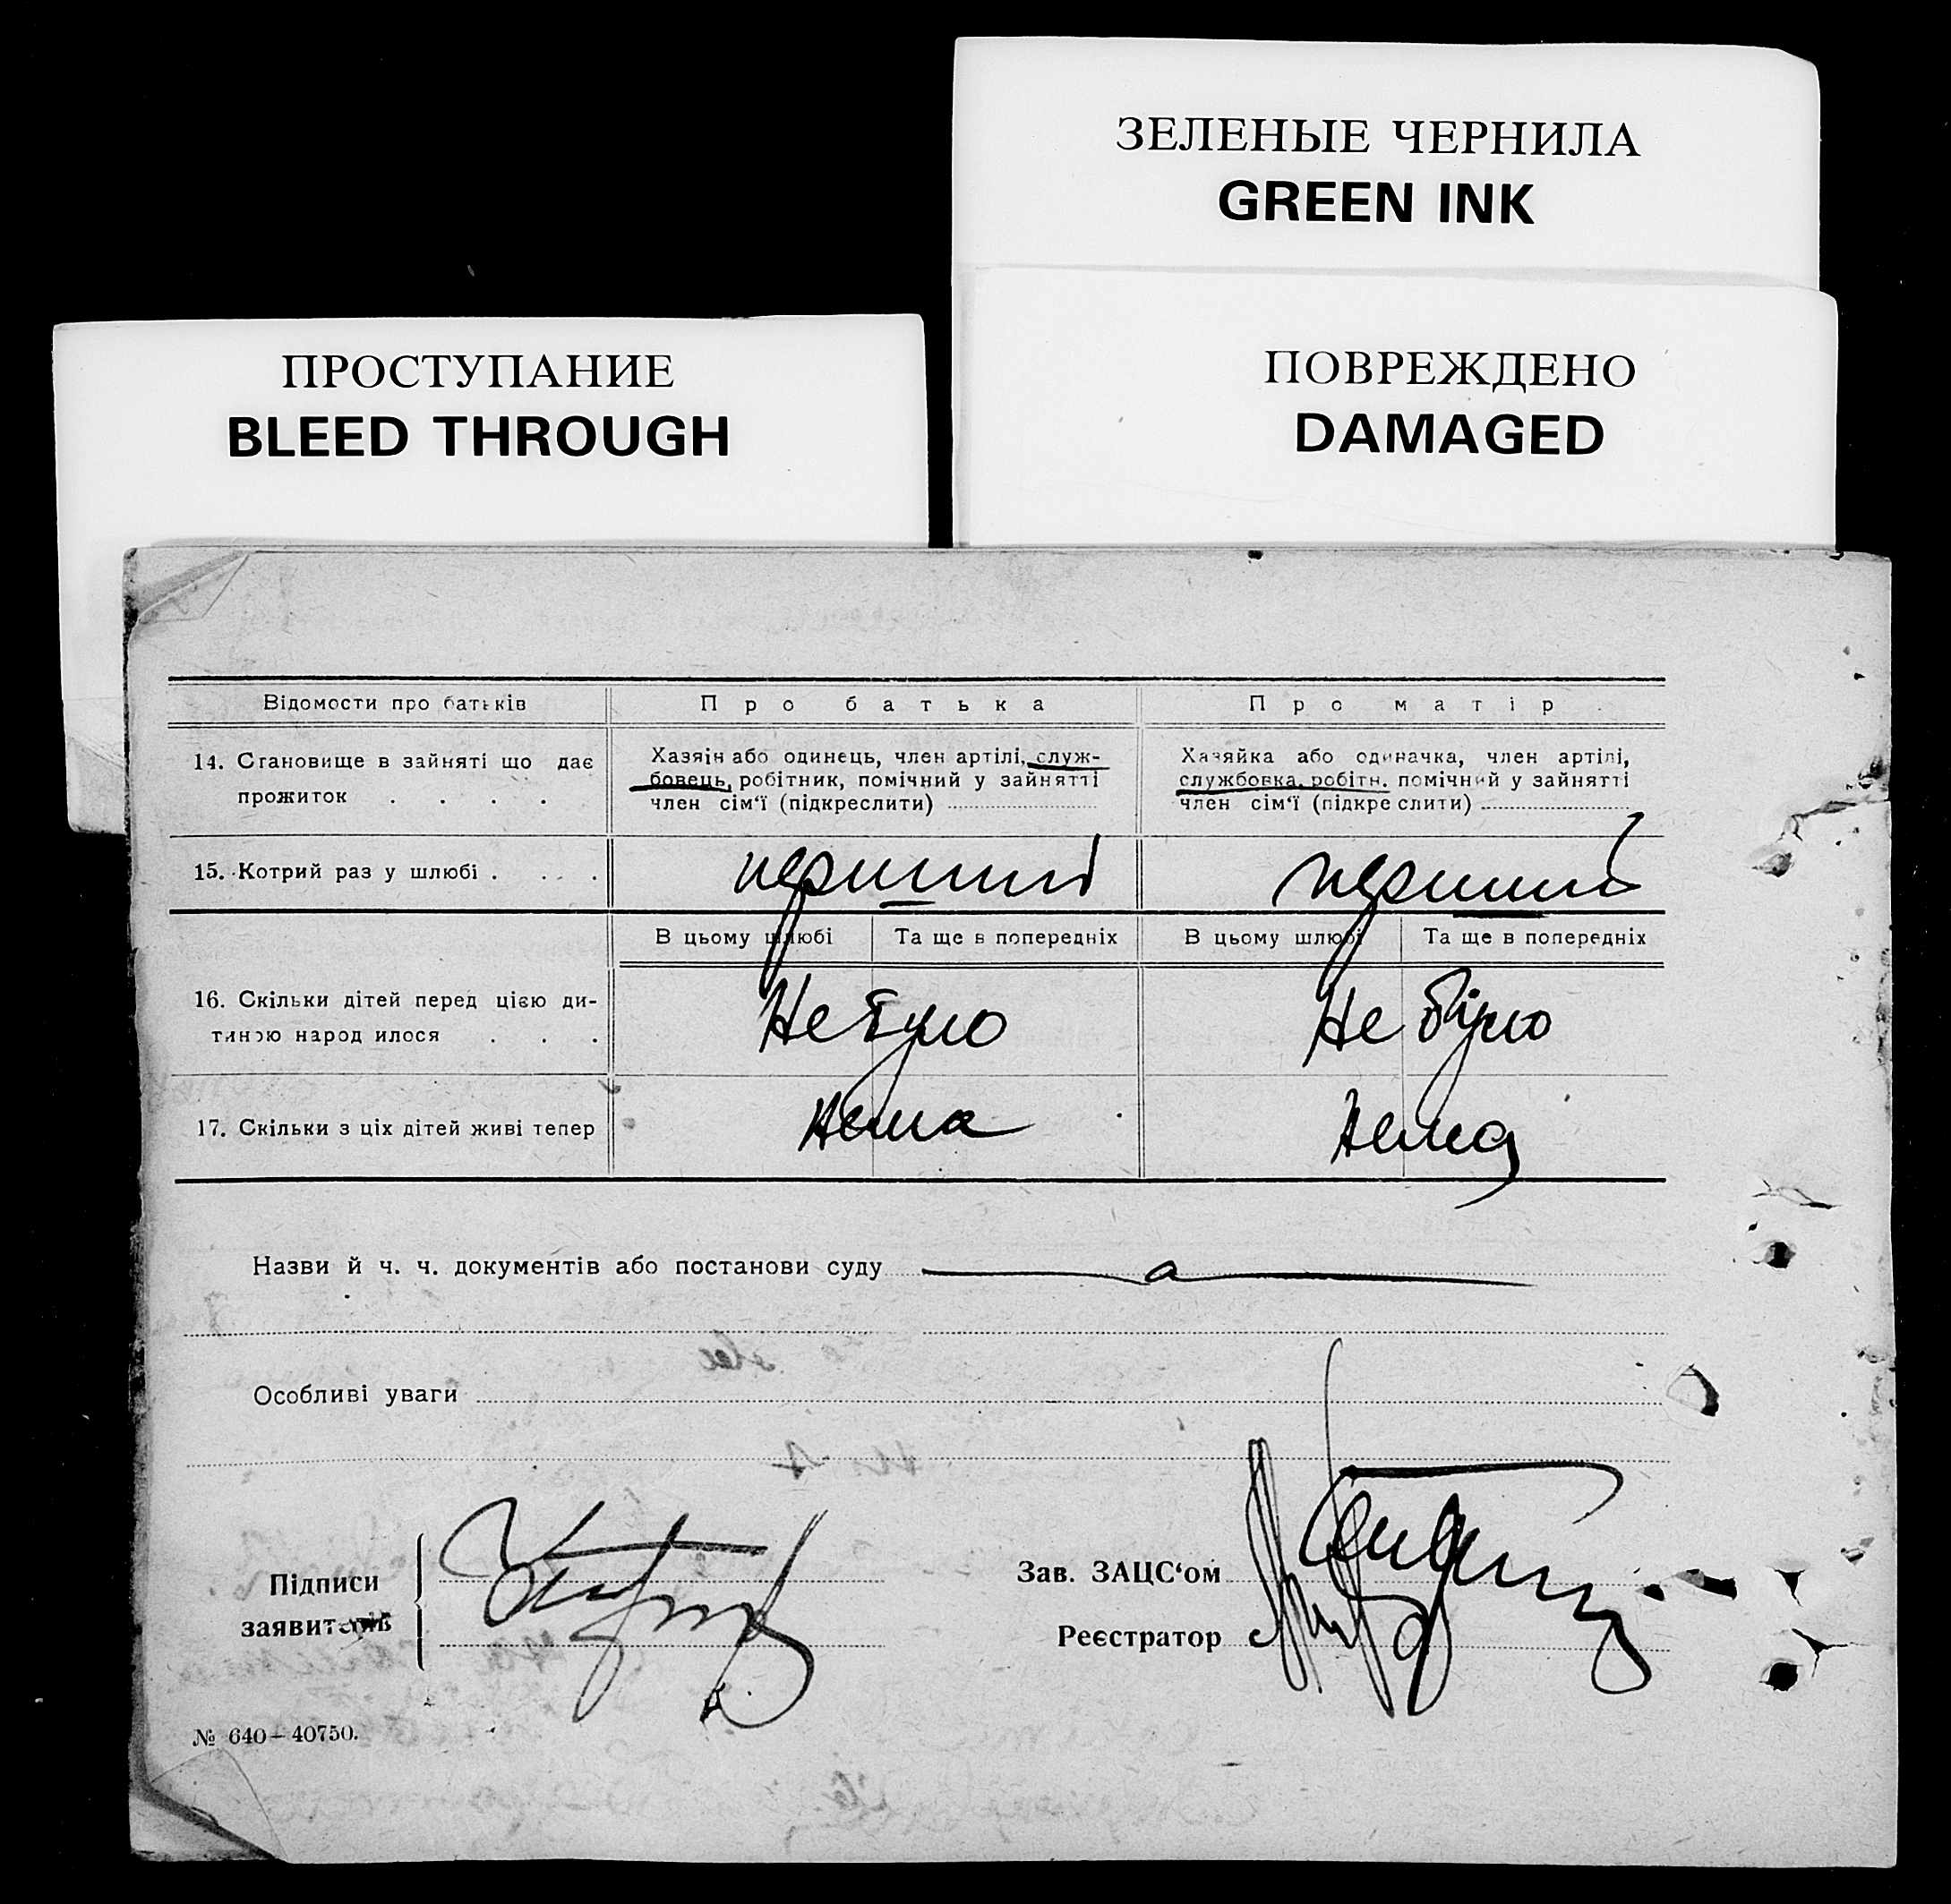 ЗЕЛЕНЫЕ ЧЕРНИЛА
GREEN INK
ПРОСТУПАНИЕ
BLEED THROUGH
ПОВРЕЖДЕНО
DAMAGED
Відомости про батьків
Про батька
Про матір
14. Становище в зайняті що дає
прожиток . . . .
Хазяїн або одинець, член артілі, служ-
бовець, робітник, помічний у зайнятті
член сім'ї (підкреслити)
Хазяйка або одиначка, член артілі,
службовка, робітн. помічний у зайнятті
член сім'ї (підкреслити)
15. Котрий раз у шлюбі . . . .
перший
перший
В цьому шлюбі
Та ще в попередніх
В цьому шлюбі
Та ще в попередніх
16. Скільки дітей перед цією ди-
тиною народилося . . .
Не було
Не було
17. Скільки з ціх дітей живі тепер
Нема
Нема
Назви й ч. ч. документів або постанови суду
Особливі уваги
Підписи
заявителів
Зав. ЗАЦС'ом
Реєстратор
№ 640—40750.